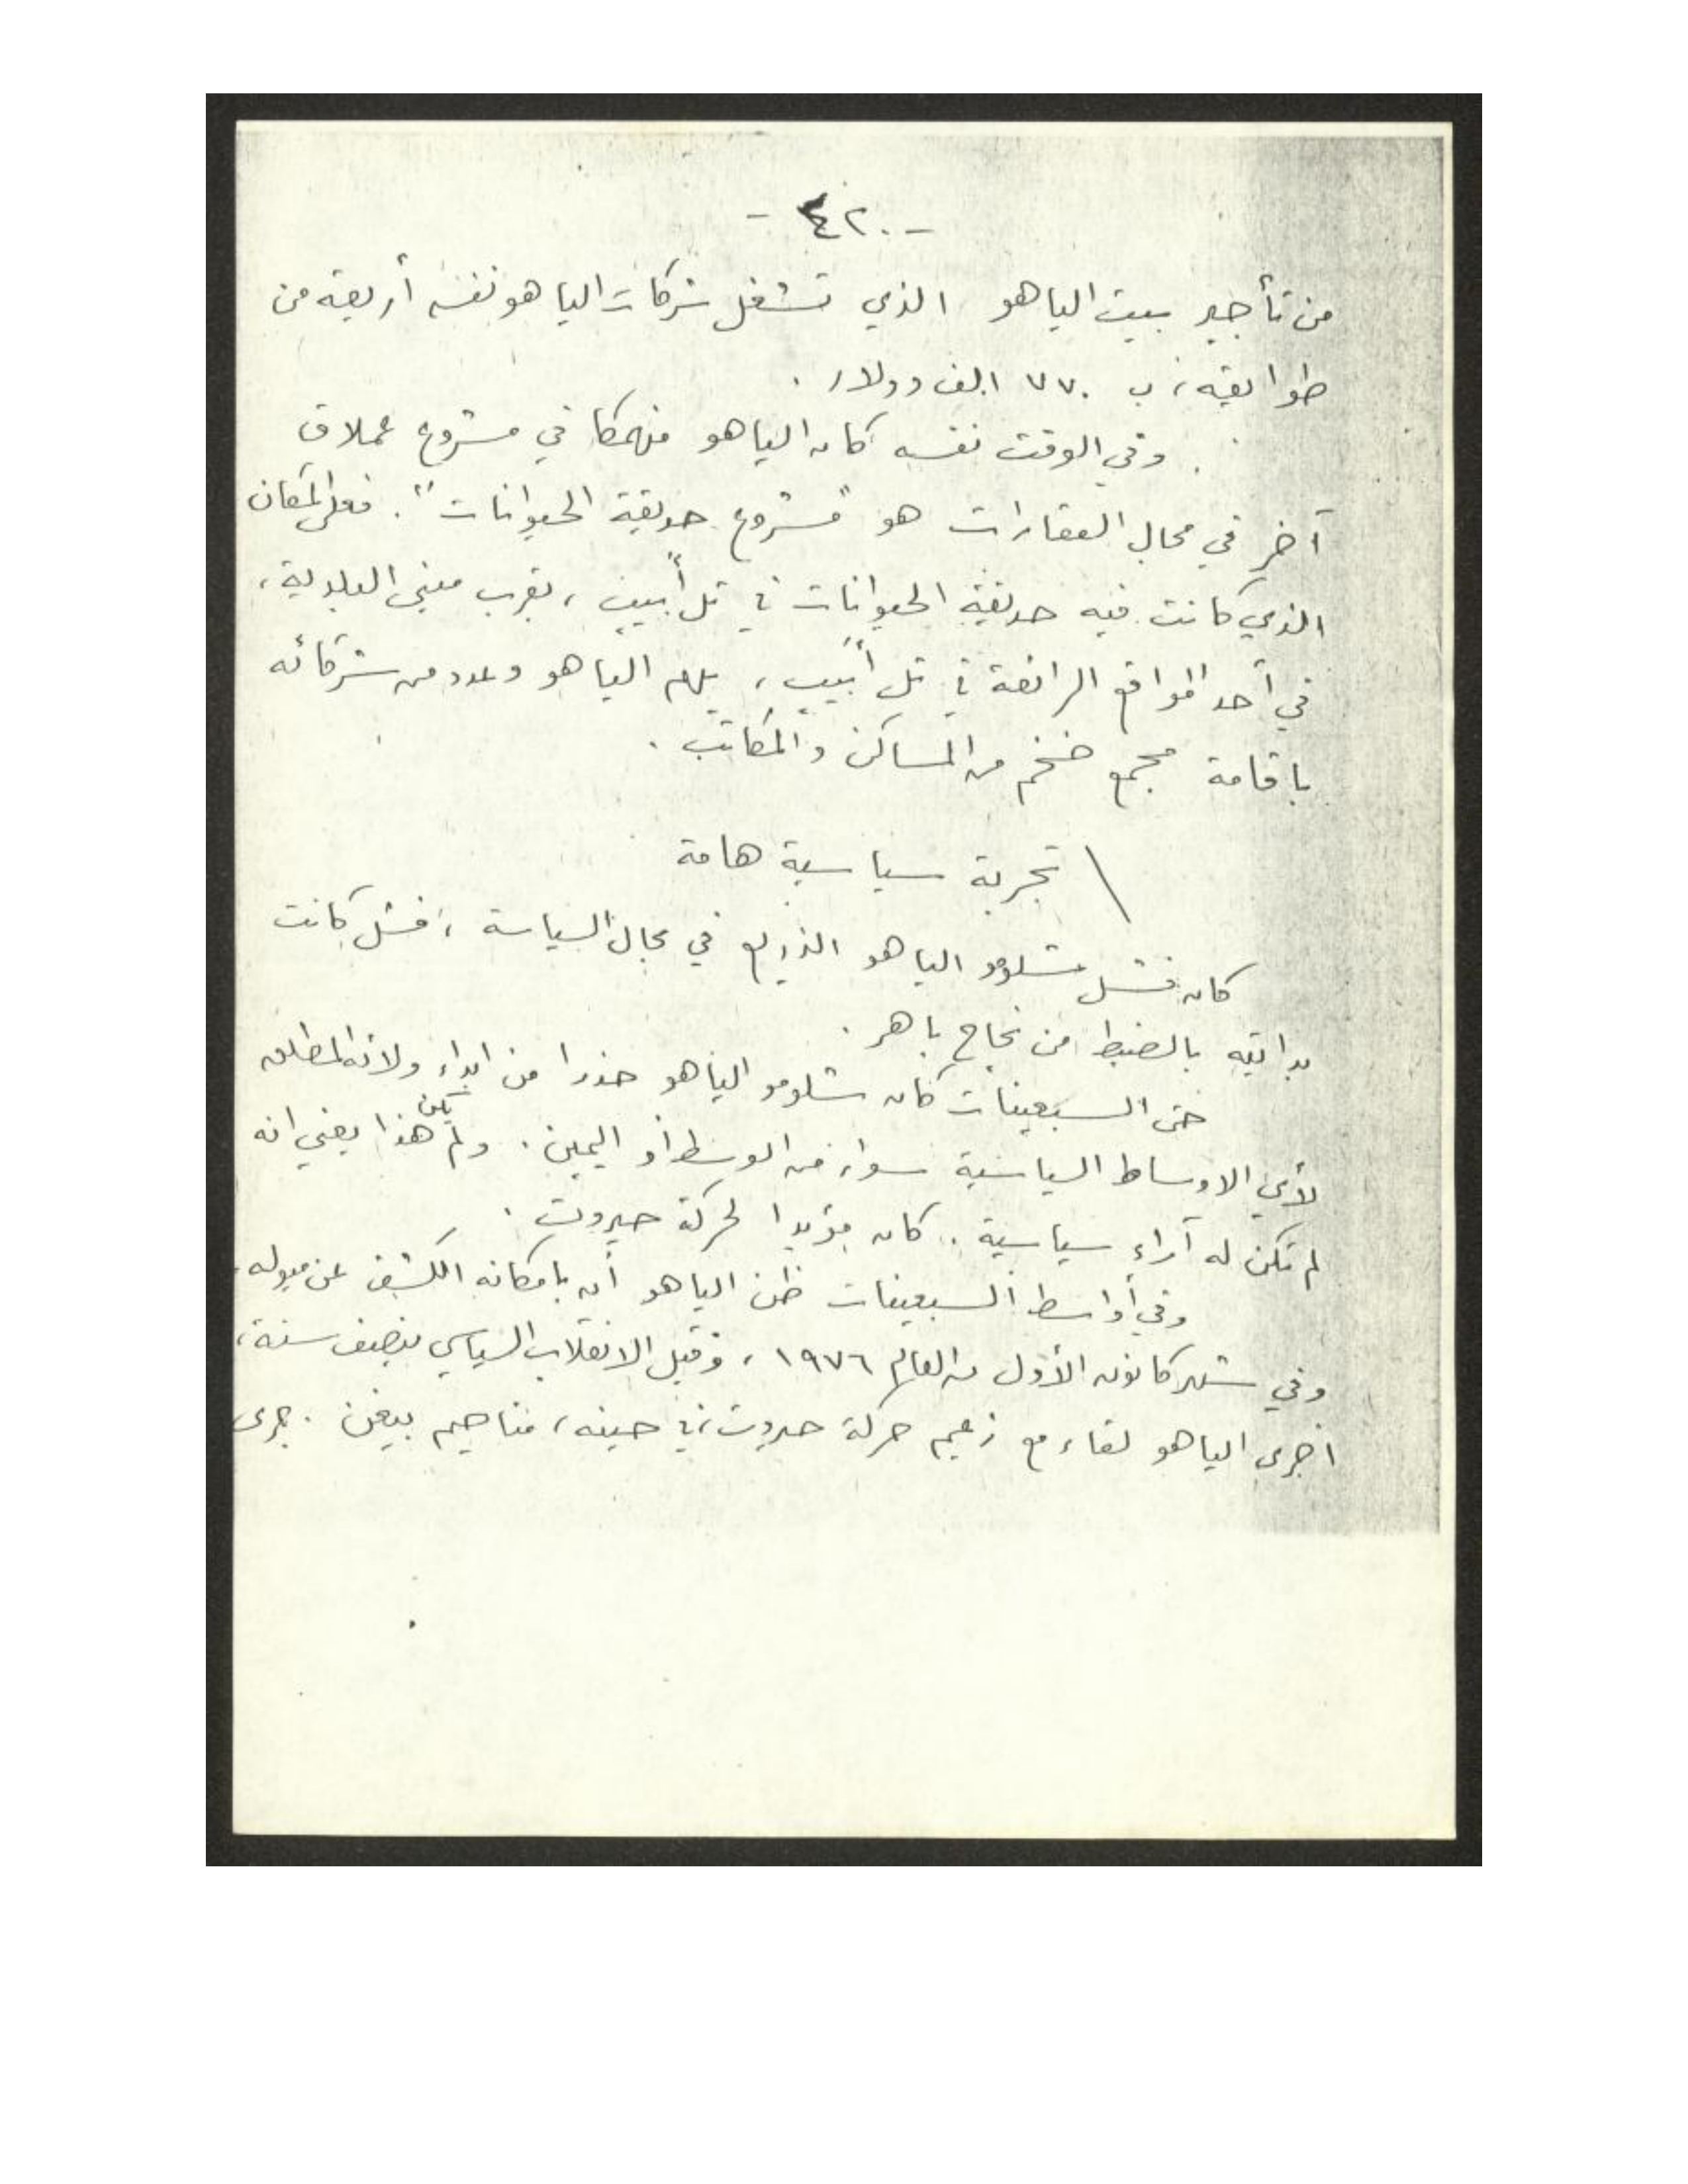 - ٤٢ -
من تأجير بيت الياهو الذي تشغل شركات الياهو نفسه أربعة من
طوابقه، ب ٧٧٠ الف دولار .
وفي الوقت نفسه كان الياهو منهمكا في مشروع عملاق
آخر في مجال العقارات هو "مشروع حديقة الحيوانات". فعلى المكان
الذي كانت فيه حديقة الحيوانات في تل أبيب ، بقرب مبنى البلدية،
في أحد المواقع الرائعة في تل أبيب ، يهم الياهو وعدد من شركائه
باقامة مجمع ضخم من المساكن والمكاتب .
تجربة سياسية هامة
كان فشل شلومو الياهو الذريع في مجال السياسة ، فشل كانت
بدايته بالضبط من نجاح باهر .
حتى السبعينات كان شلومو الياهو حذرا من ابداء ولائه المطلق
لأي الاوساط السياسية سواء من الوسط أو اليمين . ولم يكن هذا يعني انه
لم تكن له آراء سياسية . كان مؤيدا لحركة حيروت .
وفي أواسط السبعينات ظن الياهو أن بامكانه الكشف عن ميوله .
وفي شهر كانون الأول من العام ١٩٧٦ ، وقبل الانقلاب السياسي بنصف سنة،
اجرى الياهو لقاء مع زعيم حركة حيروت، في حينه، مناحيم بيغن . جرى